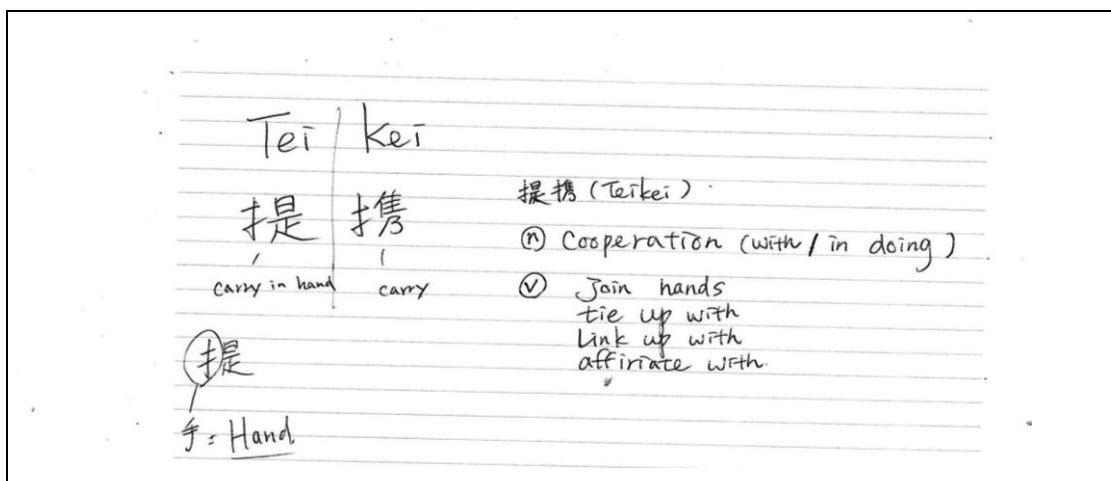 Tei kei
提 携
carry in hand carry
提
手 = Hand
提携 (Teikei)
ⓝ Cooperation (with / in doing)
ⓥ Join hands
tie up with
Link up with
affiriate with.